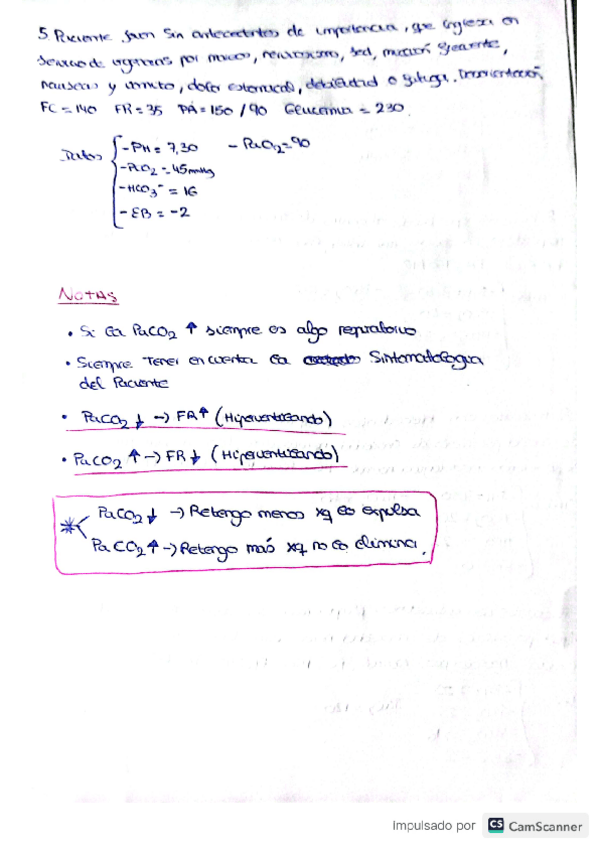 5. Paciente joven sin antecedentes de importancia, que ingresa en
servicio de urgencias por mareo, nerviosismo, sed, micción frecuente,
nauseas y vomito, dolor estomacal, debilidad o fatiga. Desorientación,
FC = 140 FR = 35 PA = 150 / 90 Glucemia = 230.
Datos
- PH = 7,30 - PaO2 = 90
- PCO2 = 45 mmHg
- HCO3- = 16
- EB = -2
Notas
• Si la PaCO2 ↑ siempre es algo respiratorio
• Siempre tener en cuenta la Sintomatologia
del Paciente
• PaCO2 ↓ → FR↑ (Hiperventilando)
• PaCO2 ↑ → FR ↓ (Hipoventilando)
PaCO2 ↓ → Retengo menos xq se expulsa
PaCO2 ↑ → Retengo más xq no se elimina.
Impulsado por CS CamScanner